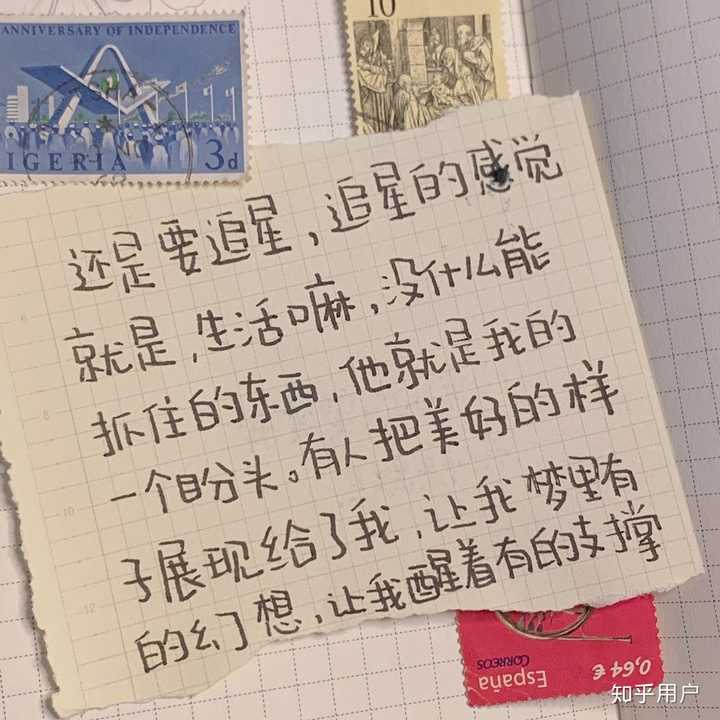 ANNIVERSARY OF INDEPENDENCE
IGERIA 3d
10
还是要追星,追星的感觉
就是,生活嘛,没什么能
抓住的东西,他就是我的
一个盼头。有人把美好的样
子展现给了我,让我梦里有
的幻想,让我醒着有的支撑
España
CORREOS
0,64 €
知乎用户